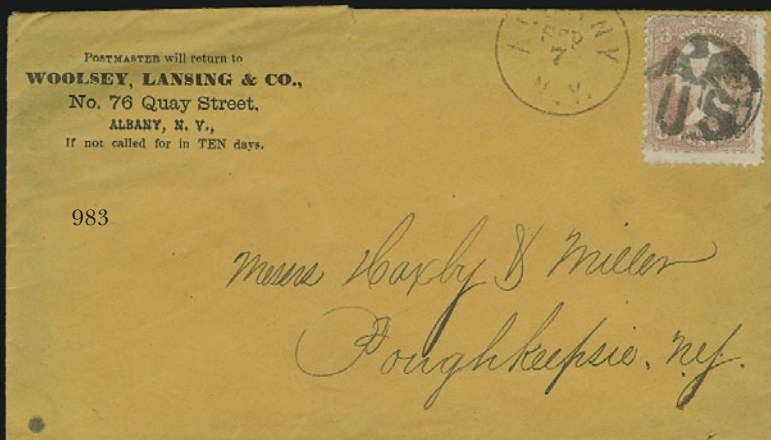 POSTMASTER will return to
WOOLSEY, LANSING & CO.,
No. 76 Quay Street,
ALBANY, N. Y.,
If not called for in TEN days.
ALBANY
SEP
7
N. Y.
3 3
POSTAGE
U.S.
983
Messrs Haxby & Miller
Poughkeepsie. N.Y.